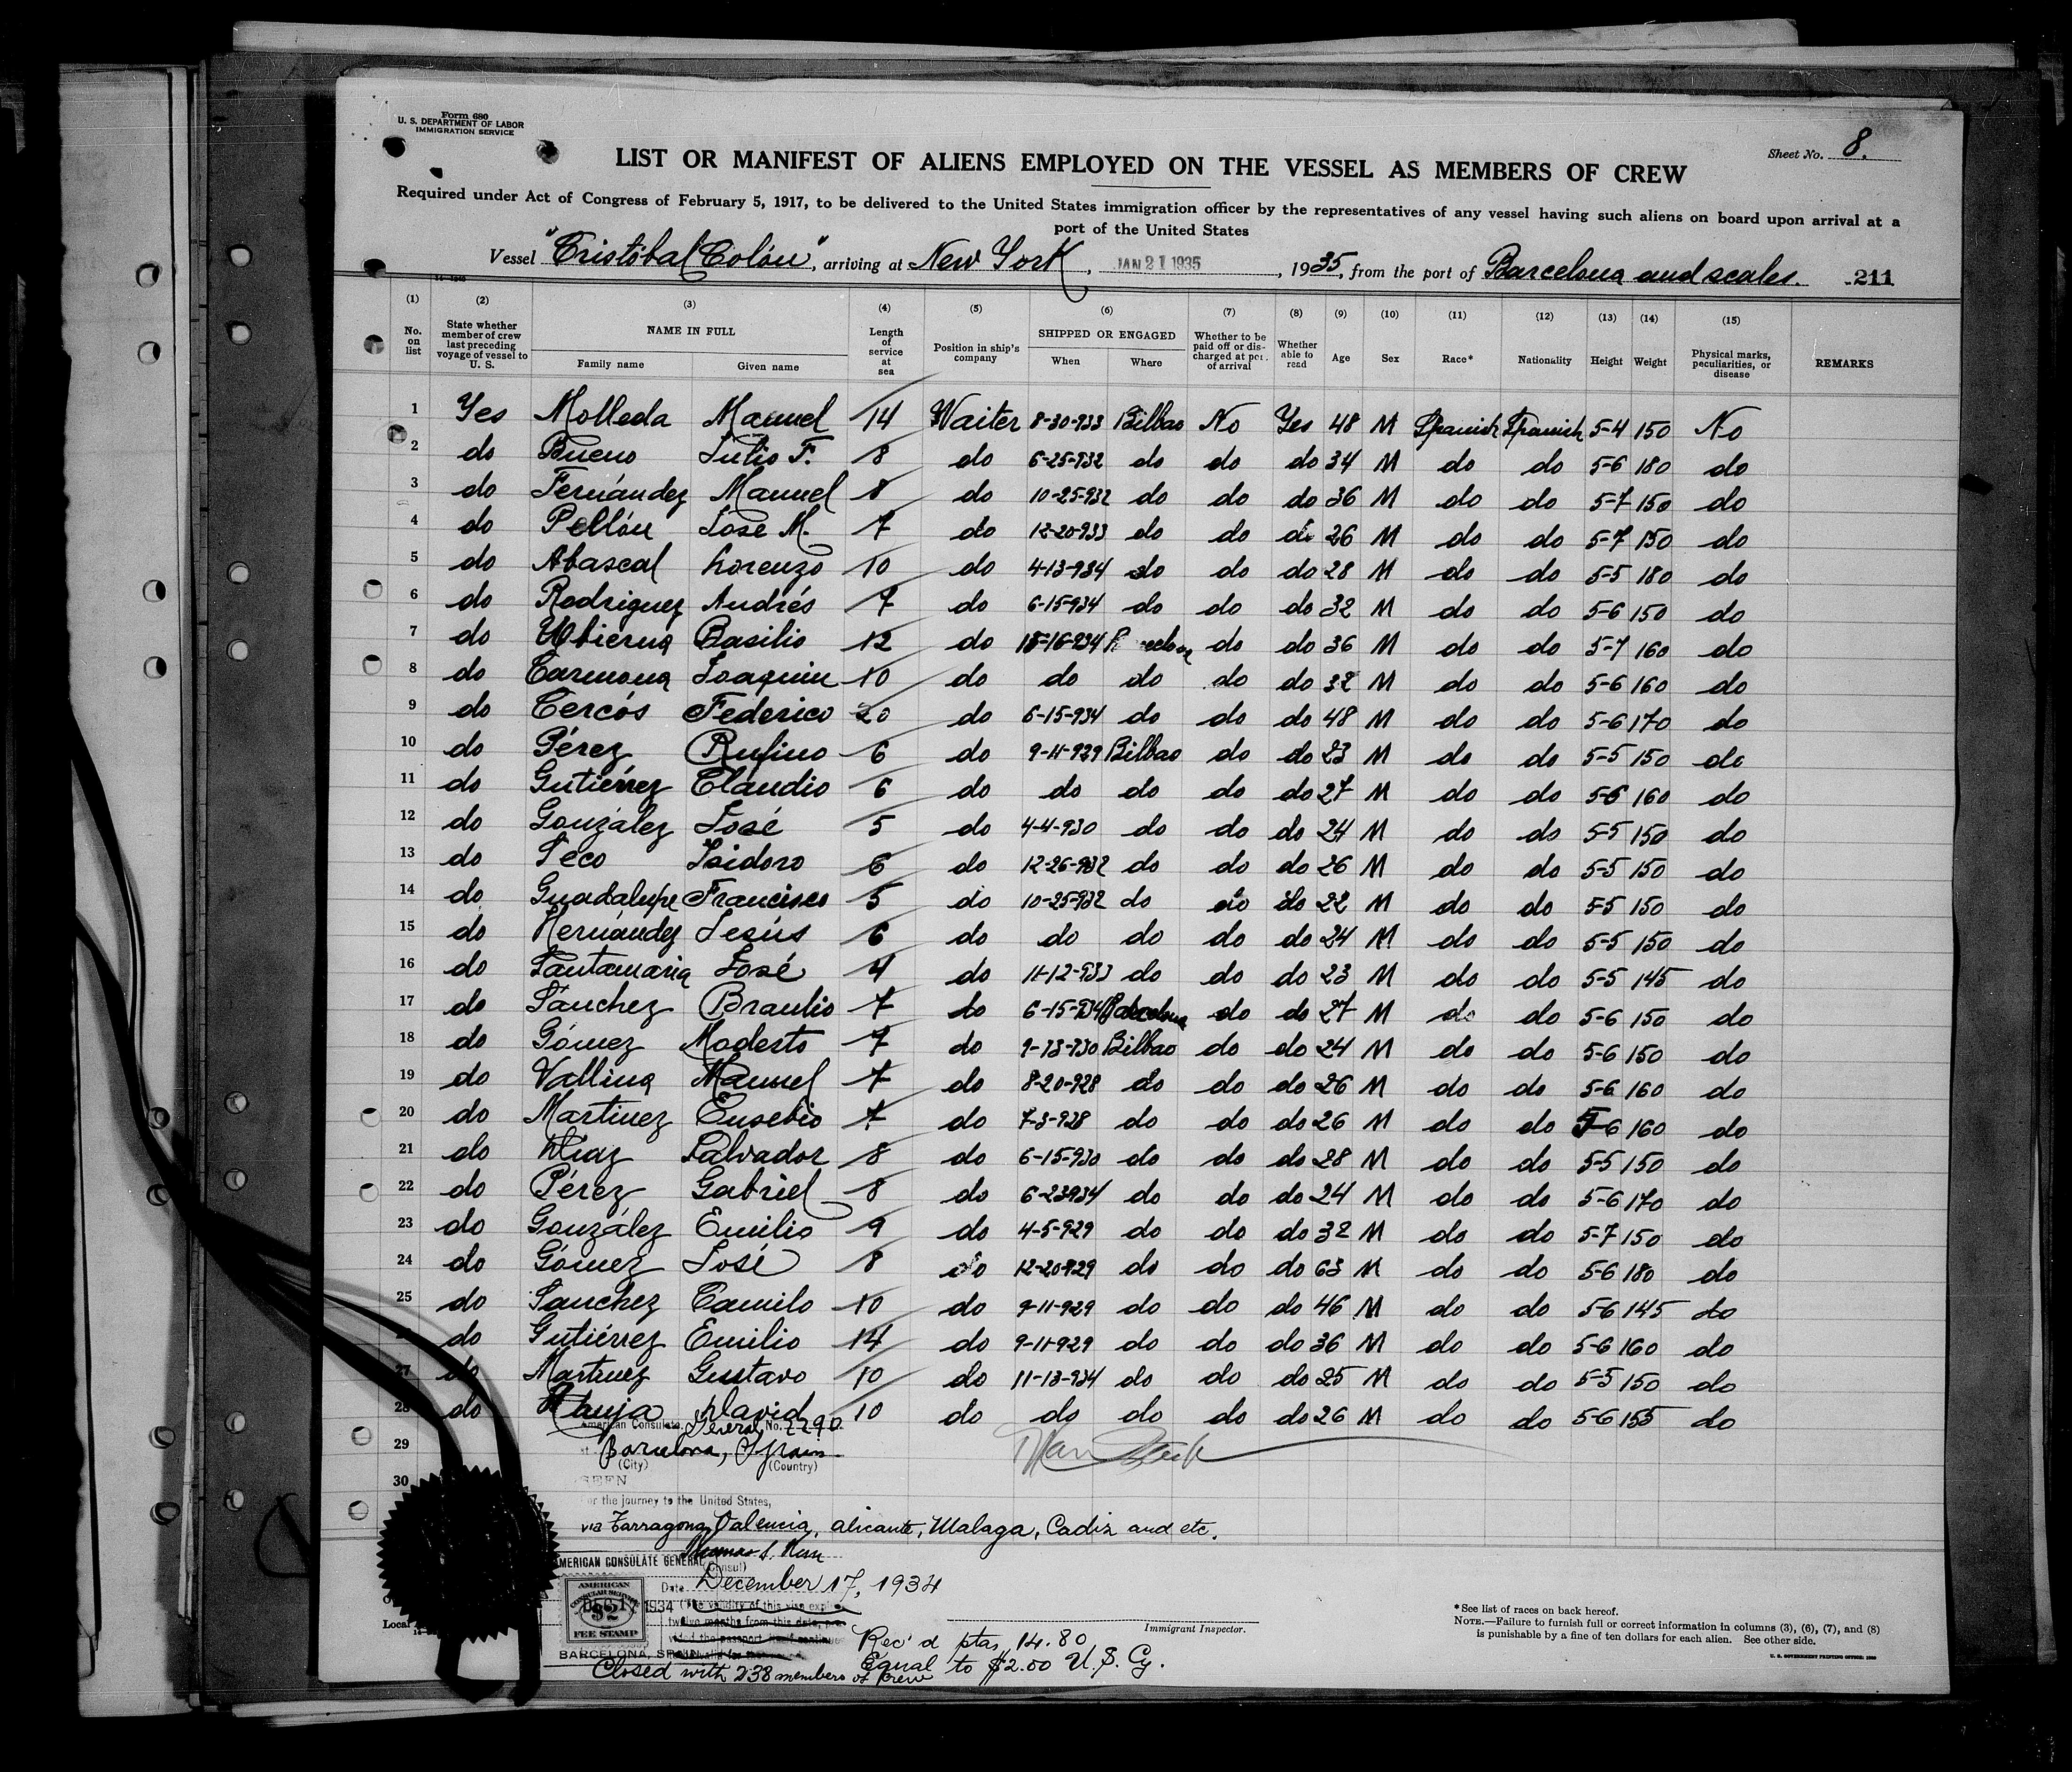 Form 680
U. S. DEPARTMENT OF LABOR
IMMIGRATION SERVICE
Sheet No. 8.
LIST OR MANIFEST OF ALIENS EMPLOYED ON THE VESSEL AS MEMBERS OF CREW
Required under Act of Congress of February 5, 1917, to be delivered to the United States immigration officer by the representatives of any vessel having such aliens on board upon arrival at a
port of the United States
Vessel "Cristóbal Colón", arriving at New York, JAN 21 1935, 1935, from the port of Barcelona and scales. 211
(1) (2) (3) (4) (5) (6) (7) (8) (9) (10) (11) (12) (13) (14) (15)
No. on list State whether member of crew last preceding voyage of vessel to U. S. NAME IN FULL Family name Given name Length of service at sea Position in ship's company SHIPPED OR ENGAGED When Where Whether to be paid off or discharged at port of arrival Whether able to read Age Sex Race* Nationality Height Weight Physical marks, peculiarities, or disease REMARKS
1 Yes Molleda Manuel 14 Waiter 8-30-933 Bilbao No Yes 48 M Spanish Spanish 5-4 150 No
2 do Bueno Julio F. 8 do 6-25-932 do do do 34 M do do 5-6 180 do
3 do Fernández Manuel 8 do 10-25-932 do do do 36 M do do 5-7 150 do
4 do Pellón José M. 7 do 12-20-933 do do do 26 M do do 5-7 150 do
5 do Abascal Lorenzo 10 do 4-13-934 do do do 28 M do do 5-5 180 do
6 do Rodriguez Andrés 7 do 6-15-934 do do do 32 M do do 5-6 150 do
7 do Ubierna Basilio 12 do Barcelona do do 36 M do do 5-7 160 do
8 do Carmona Joaquin 10 do do do do do 32 M do do 5-6 160 do
9 do Cercós Federico 20 do 6-15-934 do do do 48 M do do 5-6 170 do
10 do Pérez Rufino 6 do 9-11-929 Bilbao do do 23 M do do 5-5 150 do
11 do Gutiérrez Claudio 6 do do do do do 27 M do do 5-6 160 do
12 do González José 5 do 4-4-930 do do do 24 M do do 5-5 150 do
13 do Seco Isidoro 6 do 12-26-932 do do do 26 M do do 5-5 150 do
14 do Guadalupe Francisco 5 do 10-25-932 do do do 22 M do do 5-5 150 do
15 do Hernández Jesús 6 do do do do do 24 M do do 5-5 150 do
16 do Santamaria José 4 do 11-12-933 do do do 23 M do do 5-5 145 do
17 do Sánchez Braulio 7 do 6-15-934 Barcelona do do 27 M do do 5-6 150 do
18 do Gómez Modesto 7 do 9-13-930 Bilbao do do 24 M do do 5-6 150 do
19 do Vallina Manuel 7 do 8-20-928 do do do 26 M do do 5-6 160 do
20 do Martinez Eusebio 7 do 7-3-928 do do do 26 M do do 5-6 160 do
21 do Diaz Salvador 8 do 6-15-930 do do do 28 M do do 5-5 150 do
22 do Pérez Gabriel 8 do 6-23-934 do do do 24 M do do 5-6 170 do
23 do González Emilio 9 do 4-5-929 do do do 32 M do do 5-7 150 do
24 do Gómez José 8 do 12-20-929 do do do 63 M do do 5-6 180 do
25 do Sanchez Camilo 10 do 9-11-929 do do do 46 M do do 5-6 145 do
do Gutiérrez Emilio 14 do 9-11-929 do do do 36 M do do 5-6 160 do
27 do Martinez Gustavo 10 do 11-13-934 do do do 25 M do do 5-5 150 do
28 do David 10 do do do do do 26 M do do 5-6 155 do
American Consulate General No. 2290
29 at Barcelona, Spain
(City) (Country)
30 SEEN
For the journey to the United States,
via Tarragona, Valencia, Alicante, Malaga, Cadiz and etc.
AMERICAN CONSULATE GENERAL (Consul)
Date December 17, 1934
AMERICAN CONSULAR SERVICE $2 FEE STAMP
DEC 17 1934 (The validity of this visa expires
twelve months from this date, pro-
vided the passport be continue
BARCELONA, SPAIN
Rec'd ptas, 14.80
Equal to $2.00 U.S. Cy.
Closed with 238 members of crew
Immigrant Inspector.
Local
*See list of races on back hereof.
NOTE.—Failure to furnish full or correct information in columns (3), (6), (7), and (8)
is punishable by a fine of ten dollars for each alien. See other side.